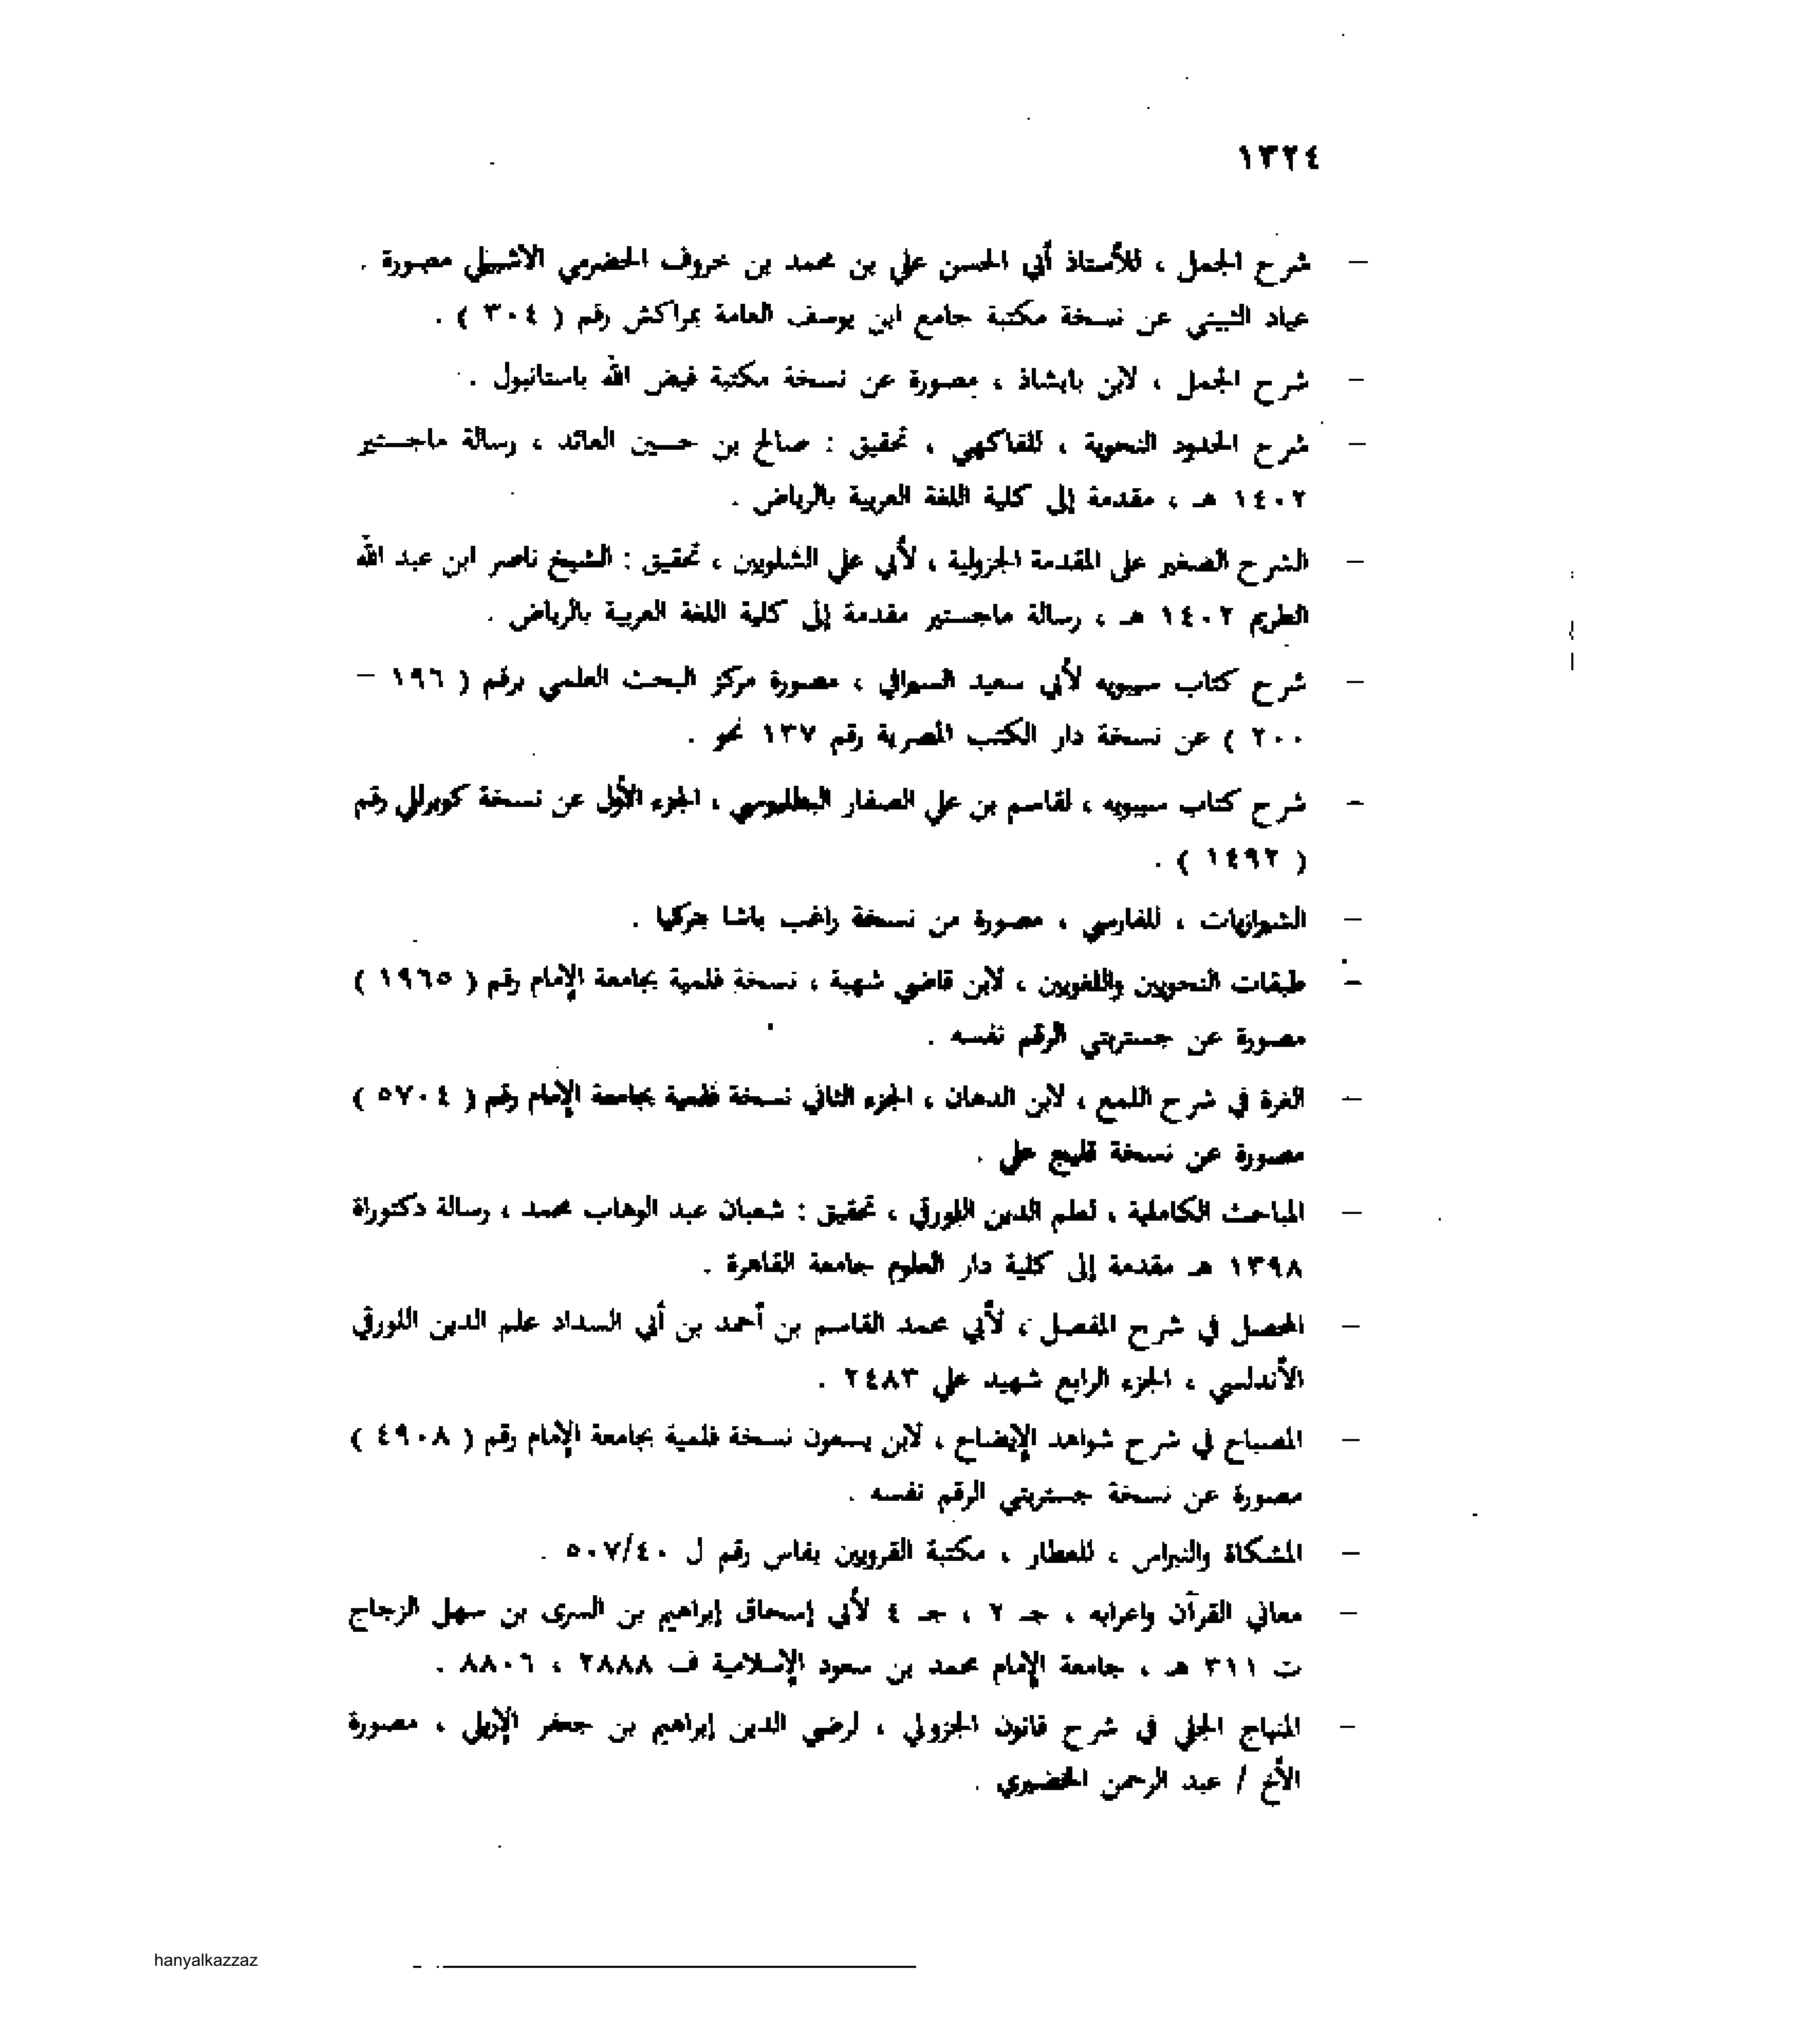 ١٣٢٤
– شرح الجمل ، للأستاذ أبي الحسن علي بن محمد بن خروف الحضرمي الاشبيلي مصورة .
عياد الثبيتي عن نسخة مكتبة جامع ابن يوسف العامة بمراكش رقم ( ٣٠٤ ) .
– شرح الجمل ، لابن بابشاذ ، مصورة عن نسخة مكتبة فيض الله باستانبول .
– شرح الحدود النحوية ، للفاكهي ، تحقيق : صالح بن حسين العائد ، رسالة ماجستير
١٤٠٢ هـ ، مقدمة إلى كلية اللغة العربية بالرياض .
– الشرح الصغير على المقدمة الجزولية ، لأبي علي الشلوبين ، تحقيق : الشيخ ناصر ابن عبد الله
الطريم ١٤٠٢ هـ ، رسالة ماجستير مقدمة إلى كلية اللغة العربية بالرياض .
– شرح كتاب سيبويه لأبي سعيد السيرافي ، مصورة مركز البحث العلمي برقم ( ١٩٦ –
٢٠٠ ) عن نسخة دار الكتب المصرية رقم ١٣٧ نحو .
– شرح كتاب سيبويه ، لقاسم بن علي الصفار البطليوسي ، الجزء الأول عن نسخة كوبرللي رقم
( ١٤٩٢ ) .
– الشيرازيات ، للفارسي ، مصورة من نسخة راغب باشا بتركيا .
– طبقات النحويين واللغويين ، لابن قاضي شهبة ، نسخة فلمية بجامعة الإمام رقم ( ١٩٦٥ )
مصورة عن جستربتي الرقم نفسه .
– الغرة في شرح اللمع ، لابن الدهان ، الجزء الثاني نسخة فلمية بجامعة الإمام رقم ( ٥٧٠٤ )
مصورة عن نسخة قليج على .
– المباحث الكاملية ، لعلم الدين اللورقي ، تحقيق : شعبان عبد الوهاب محمد ، رسالة دكتوراة
١٣٩٨ هـ مقدمة إلى كلية دار العلوم جامعة القاهرة .
– المحصل في شرح المفصل ، لأبي محمد القاسم بن أحمد بن أبي السداد علم الدين اللورقي
الأندلسي ، الجزء الرابع شهيد علي ٢٤٨٣ .
– المصباح في شرح شواهد الإيضاح ، لابن يسعون نسخة فلمية بجامعة الإمام رقم ( ٤٩٠٨ )
مصورة عن نسخة جستربتي الرقم نفسه .
– المشكاة والنبراس ، للعطار ، مكتبة القرويين بفاس رقم ل ٥٠٧/٤٠ .
– معاني القرآن واعرابه ، جـ ٢ ، جـ ٤ لأبي إسحاق إبراهيم بن السرى بن سهل الزجاج
ت ٣١١ هـ ، جامعة الإمام محمد بن سعود الإسلامية ف ٢٨٨٨ ، ٨٨٠٦ .
– المنهاج الجلي في شرح قانون الجزولي ، لرضي الدين إبراهيم بن جعفر الإربلي ، مصورة
الأخ / عبد الرحمن الخضيري .
hanyalkazzaz